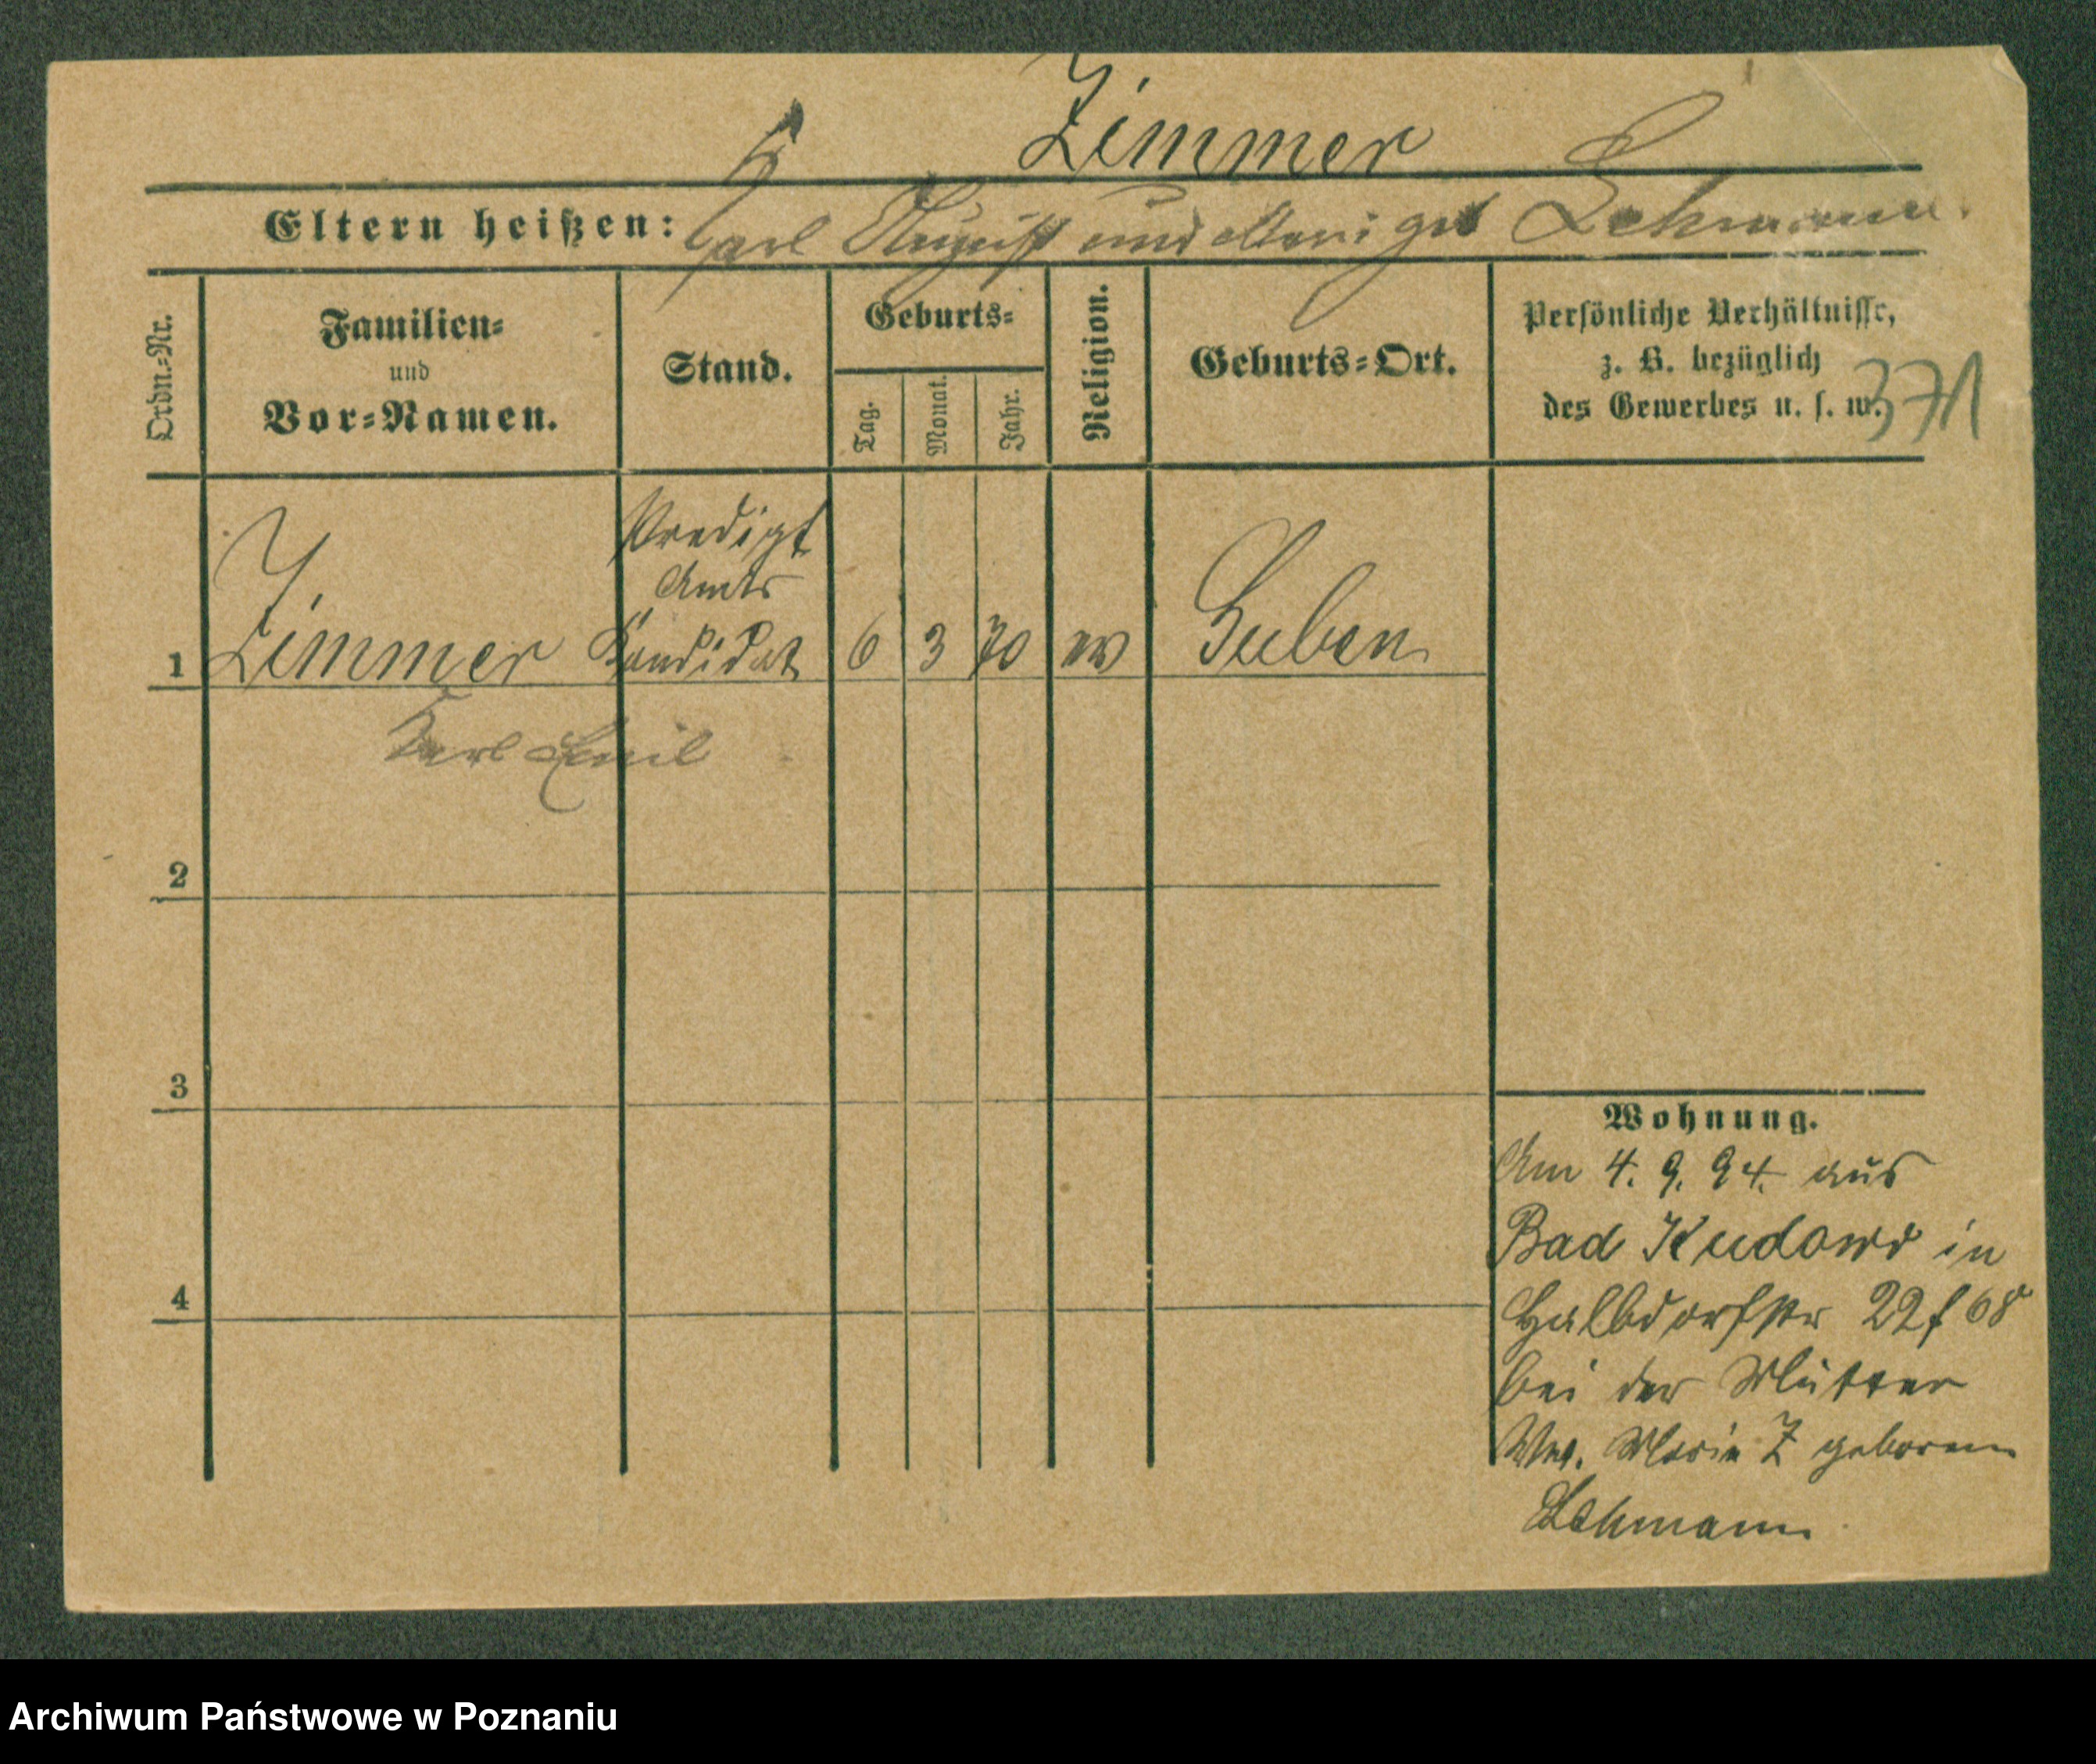 Zimmer
Eltern heißen: Carl August und Mari geb Lehmann.
Ordn.=Nr.
Familien=
und
Vor=Namen.
Stand.
Geburts=
Tag.
Monat.
Jahr.
Religion.
Geburts=Ort.
Persönliche Verhältnisse,
z. B. bezüglich
des Gewerbes u. s. w.
371
Predigt
Amts
1 Zimmer Kandidat 6 3 70 ev Guben
Karl Emil
2
3
4
Wohnung.
Am 4. 9. 94. aus
Bad Kudowa in
Halbdorfstr 22 f 68
bei der Mutter
Ww. Marie Z geborene
Lehmann
Archiwum Państwowe w Poznaniu